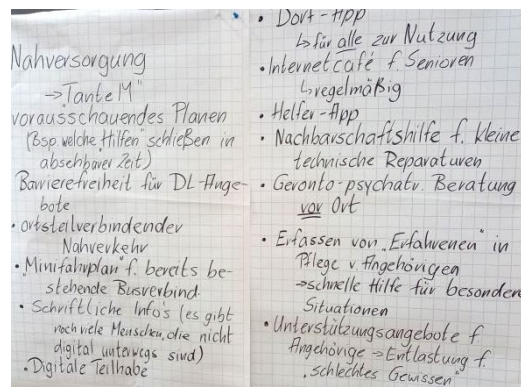 Nahversorgung
→ „Tante M"
vorausschauendes Planen
(Bsp. welche „Hilfen" schließen in
absehbarer Zeit)
Barrierefreiheit für DL-Ange-
bote
• ortsteilverbindender
Nahverkehr
• „Minifahrplan" f. bereits be-
stehende Busverbind.
• Schriftliche Info's (es gibt
noch viele Menschen, die nicht
digital unterwegs sind)
• Digitale Teilhabe
• Dorf-App
↳ für alle zur Nutzung
• Internetcafé f. Senioren
↳ regelmäßig
• Helfer-App
• Nachbarschaftshilfe f. kleine
technische Reparaturen
• Geronto-psychatr. Beratung
vor Ort
• Erfassen von „Erfahrenen" in
Pflege v. Angehörigen
→ schnelle Hilfe für besondere
Situationen
• Unterstützungsangebote f
Angehörige → Entlastung f.
„schlechtes Gewissen"